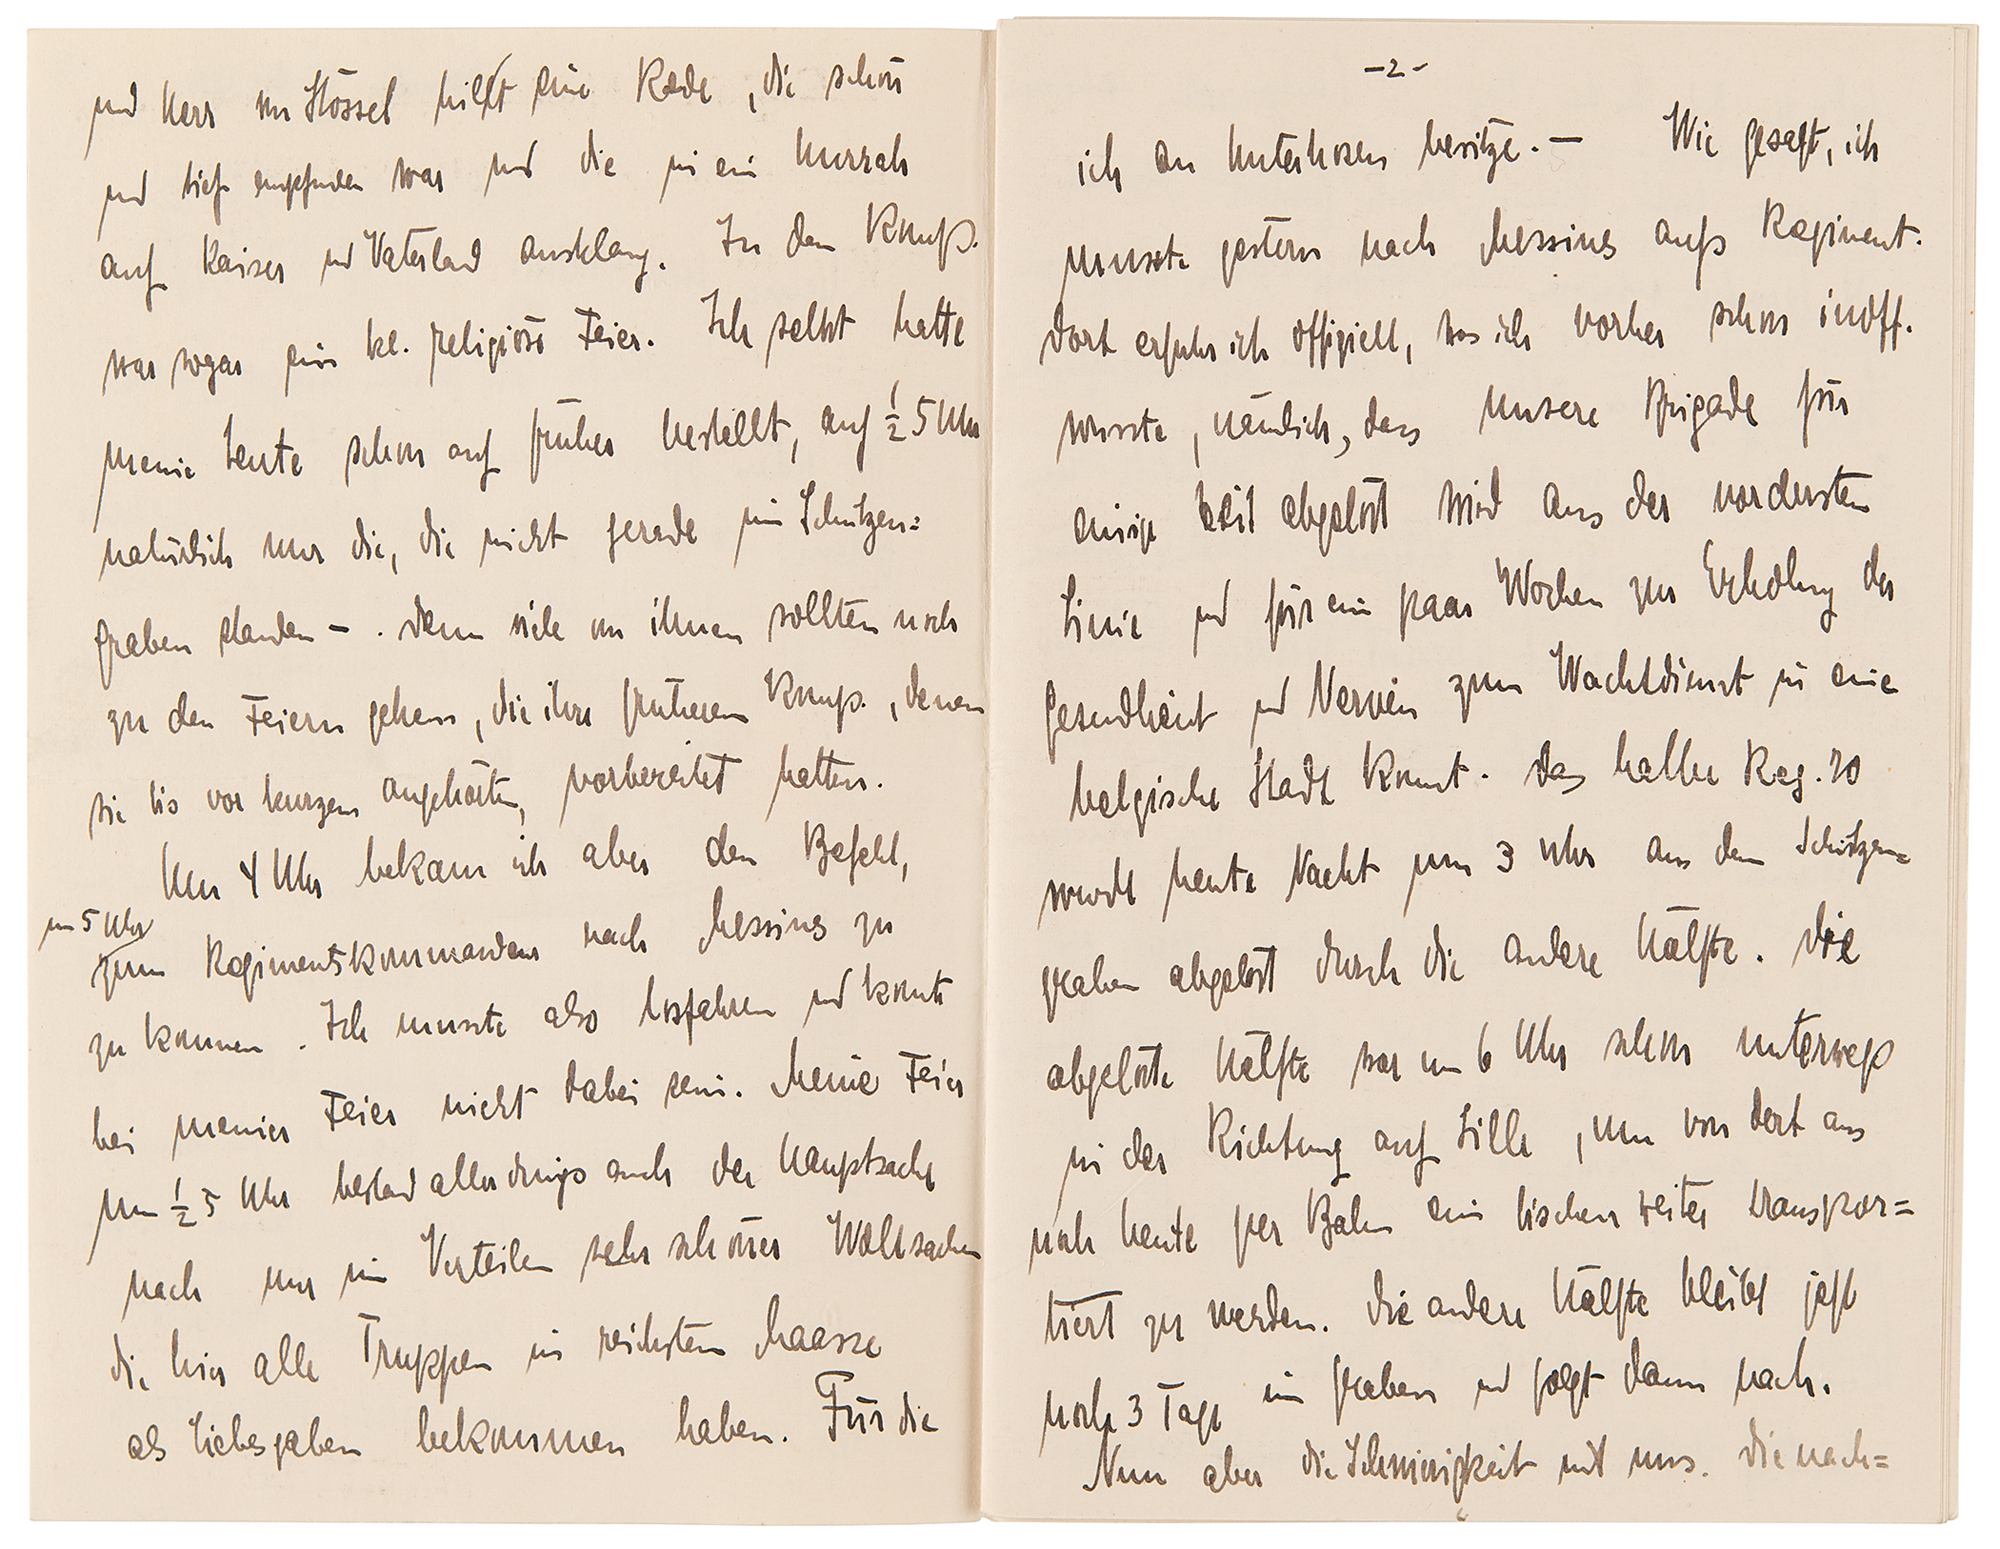 und Herr von Stössel hielt eine Rede, die schön
und tief empfunden war und die in ein Hurrah
auf Kaiser und Vaterland ausklang. In den Komp.
war sogar eine kl. religiöse Feier. Ich selbst hatte
meine Leute schon auf früher bestellt, auf ½ 5 Uhr
natürlich nur die, die nicht gerade im Schützen=
graben standen – . denn viele von ihnen sollten noch
zu den Feiern gehen, die ihre früheren Komp., denen
sie bis vor kurzem angehörten, vorbereitet hatten.
Um 4 Uhr bekam ich aber den Befehl,
um 5 Uhr
zum Regimentskommandeur nach Messines zu
zu kommen. Ich musste also losfahren und konnte
bei meiner Feier nicht dabei sein. Meine Feier
um ½ 5 Uhr bestand allerdings auch der Hauptsache
nach nur im Verteilen sehr schöner Wollsachen
die hier alle Truppen in reichstem Maasse
als Liebesgaben bekommen haben. Für die
–2–
ich an Unterhosen besitze. – Wie gesagt, ich
musste gestern nach Messines aufs Regiment.
dort erfuhr ich offiziell, was ich vorher schon inoff.
wusste, nämlich, dass unsere Brigade für
einige Zeit abgelöst wird aus der vordersten
Linie und für ein paar Wochen zur Erholung der
Gesundheit und Nerven zum Wachtdienst in eine
belgische Stadt kommt. Das halbe Reg. 20
wurde heute Nacht um 3 Uhr aus dem Schützen=
graben abgelöst durch die andere Hälfte. Die
abgelöste Hälfte war um 6 Uhr schon unterwegs
in der Richtung auf Lille, um von dort aus
noch heute per Bahn ein bischen weiter transpor=
tiert zu werden. die andere Hälfte bleibt jetzt
noch 3 Tage im Graben und folgt dann nach.
Nun aber die Schwierigkeit mit uns. Die nach=